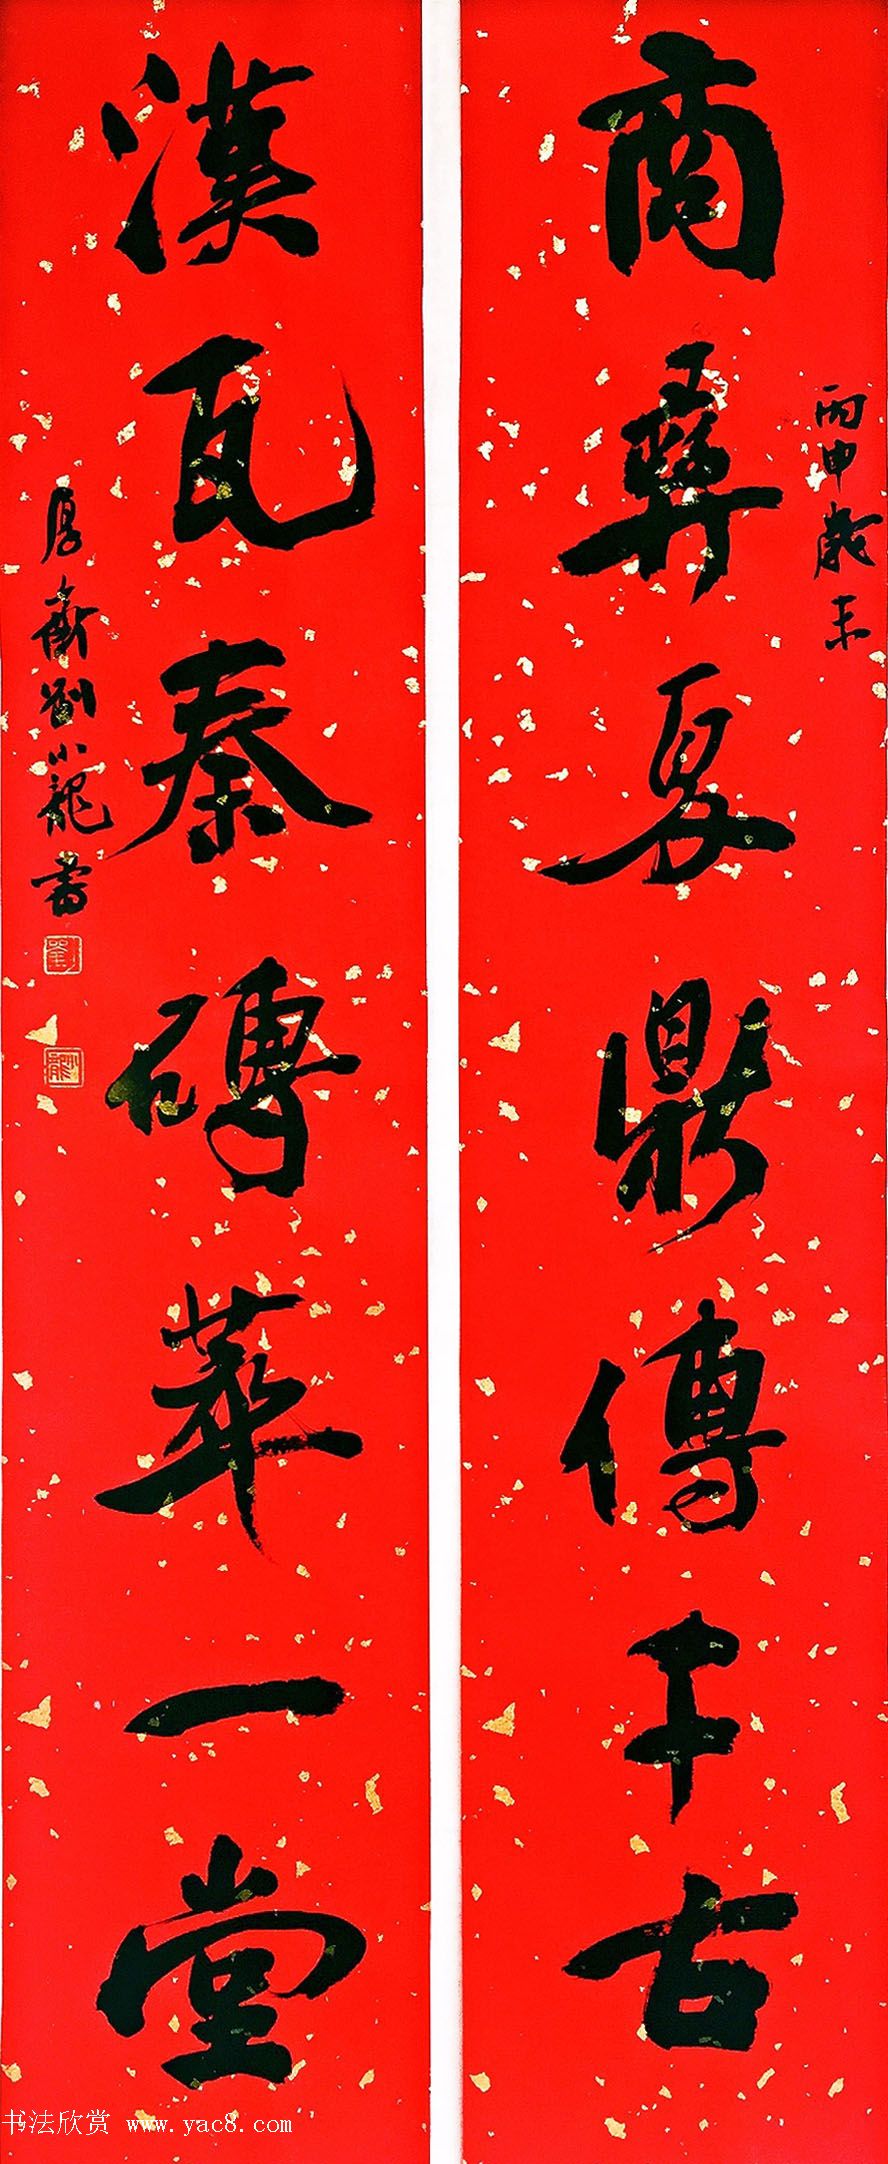 商彝夏鼎傳千古
丙申歲末
漢瓦秦磚萃一堂
厚齋劉小龍書
劉
小龍
书法欣赏 www.yac8.com